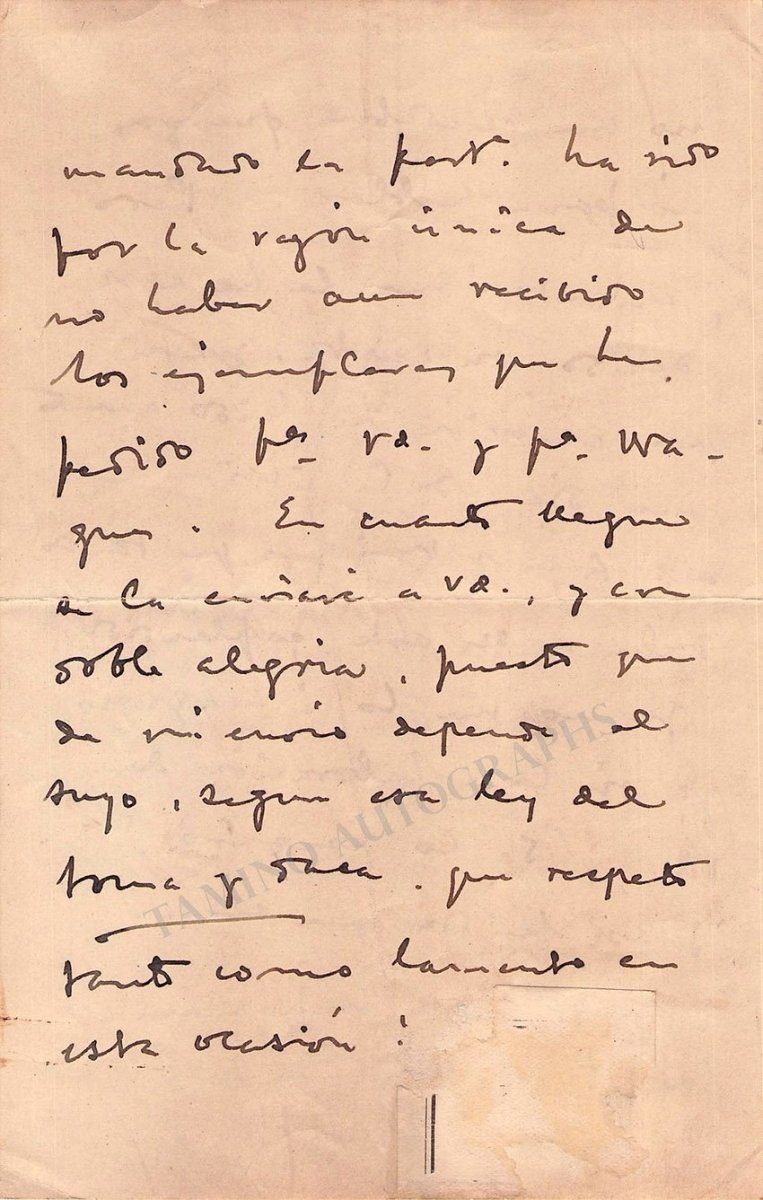 mandado la part.ª ha sido
por la razón única de
no haber aun recibido
los ejemplares que he
pedido pª. Vd. y pª. Wa-
gner. En cuanto llegue
la enviaré a Vd., y con
doble alegria, puesto que
de mi envio depende el
suyo, segun esa ley del
toma y daca, que respeto
tanto como lamento en
esta ocasión!
TAMINO AUTOGRAPHS